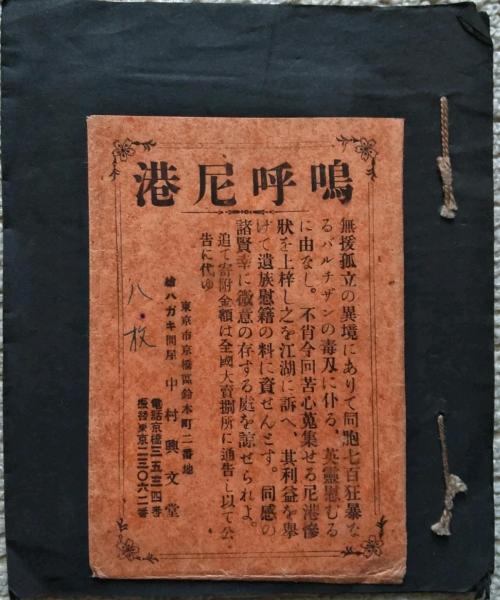 嗚呼尼港
無援孤立の異境にありて同胞七百狂暴な
るパルチザンの毒刄に仆る、英靈慰むる
に由なし。不肖今回苦心蒐集せる尼港慘
狀を上梓し之を江湖に訴へ、其利益を擧
げて遺族慰藉の料に資せんとす。同感の
諸賢幸に微意の存する處を諒せられよ。
追て寄附金額は全國大賣捌所に通告し以て公
告に代ゆ
東京市京橋區鈴木町二番地
繪ハガキ問屋 中村興文堂
電話京橋三五三四番
振替東京二三〇六二番
八枚